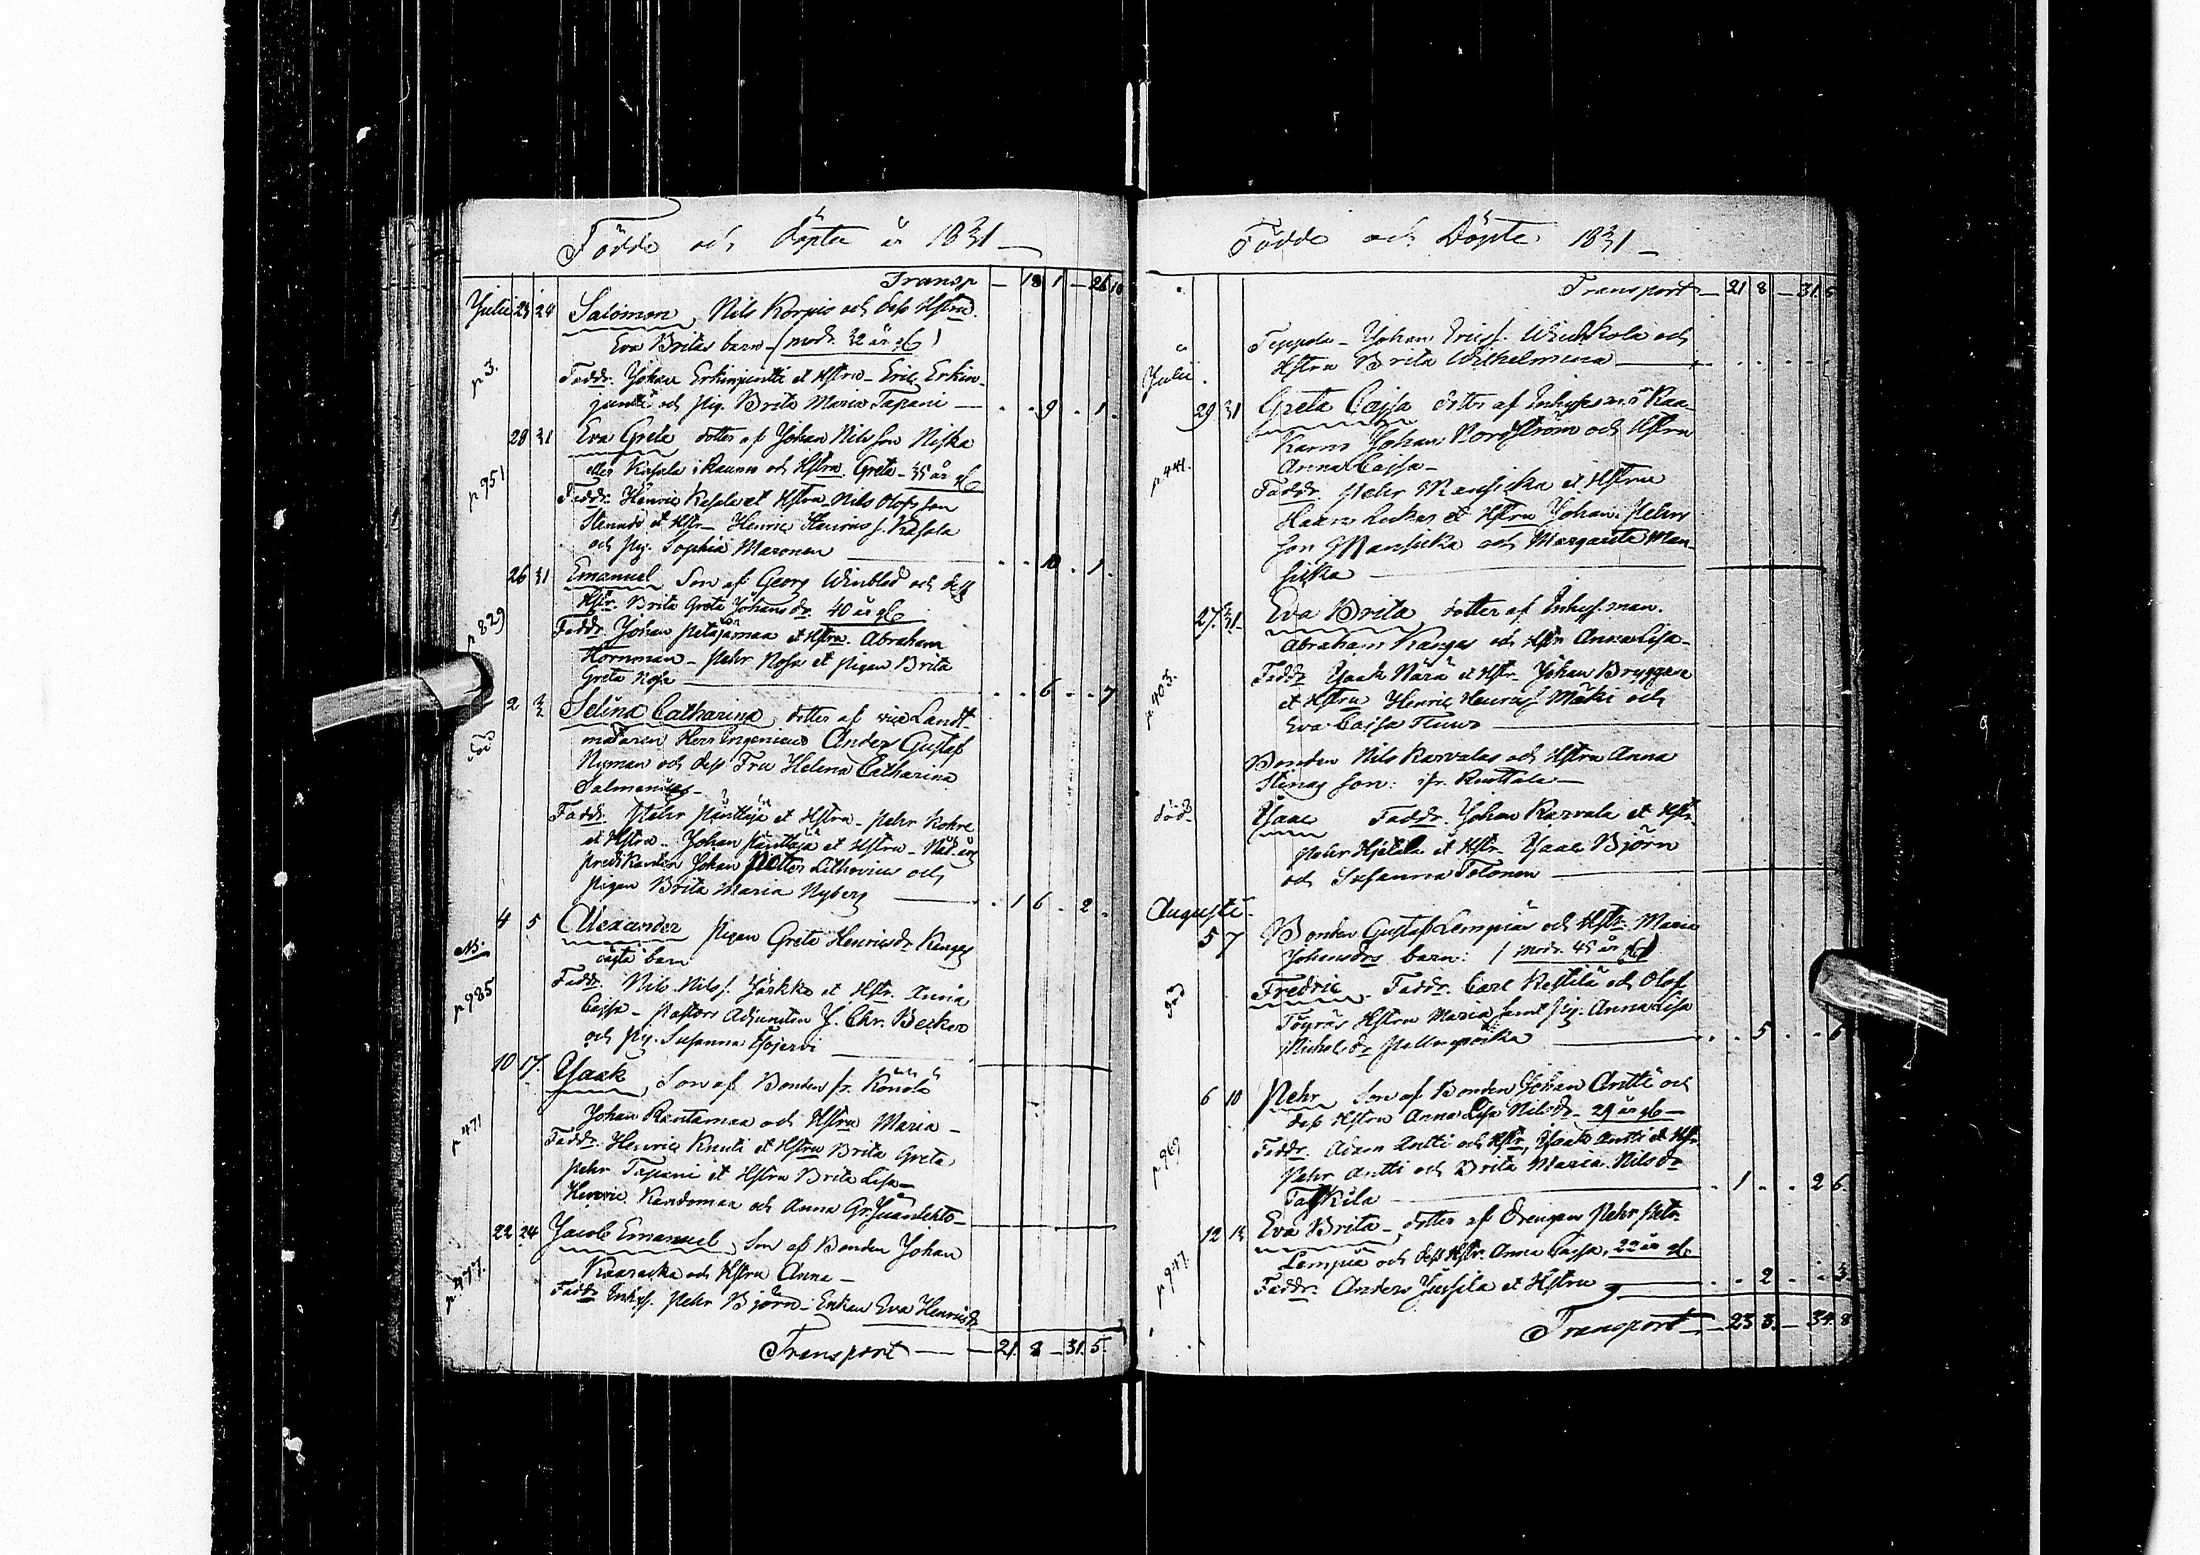 Födde och döpte år 1831
Transp — 18 1 — 26 10
Julii 23 24 Salomon, Nils Korpis och dess Hstru
Eva Britas barn – (modr. 32 år gl)
p 3. Faddr. Johan Erkinjuntti et Hstru – Eric Erkin-
juntti och pig. Brita Maria Tapani — . . 9 . 1 .
28 31 Eva Greta dotter af Johan Nilsson Niska
eller Kasala i Raumo och Hstru Greta – 35 år gl
p 951 Faddr. Henric Kasala et Hstru Nils Olofsson
et Hstr – Henric Henrics s. Kasala
och pig. Sophia Maronen — . . 10 . 1 .
26 31 Emanuel Son af Georg Winblad och dess
Hstr. Brita Greta Johansdr. 40 år gl
p 829 Faddr. Johan Petäjämaa et Hstru. Abraham
Hornman – Pehr Rosa et pigan Brita
Greta Rosa — . . 6 . . 7
2 Selina Catharina, dotter af vice Landt-
mätaren Herr Ingenieur Anders Gustaf
Nyman och dess Fru Helena Catharina
Salmenius –
Faddr. Pehr Pänttäjä et Hstru – Pehr Kohre
et Hstru – Johan Pänttäjä et Hstru –
predikanten Johan Petter Lithovius och
Pigan Brita Maria Nyberg — . 1 6 . 2 .
4 5 Alexander Pigan Greta Henricsdr. Kangas
oägta barn
NB.
p 985 Faddr. Nils Nilss. Järkkö et Hstr. Anna
Cajsa – Pastors Adjuncten J. Chr. Becker
och pig. Susanna
10 17. Isaak, Son af Bonden fr. Könölä
Johan Rantamaa och Hstru Maria –
p 471 Faddr. Henric Knuti et Hstru Brita Greta,
Pehr Tapani et Hstru Brita Lisa –
Henric och Anna Gr. Juanlehto –
22 24 Jacob Emanuel, Son af Bonden Johan
Kaaracka och Hstru Anna –
p. 477. Faddr. Inhys. Pehr Björn – Enkan Eva Henricsdr
Transport — — 21. 8 — 31. 5.
Födde och Döpte 1831 —
Transport — 21 8 — 31. 5
Teppola – Johan Erics s. Wirkkola och
Hstru Brita Wilhelmina —
Julii
29 31 Greta Cajsa dotter af Inhyses m. i Raa-
Johan Nordström och Hstru
Anna Cajsa –
p 441. Faddr. Pehr Mansicka et Hstru
et Hstru Johan Pehrs
son Mansicka och Margareta Man-
sicka —
27. 31. Eva Brita dotter af Inhys. man.
Abraham Kangas och Hstr Anna Lisa –
p 403. Faddr Isaak Närä et Hstr. Johan Bryggare
et Hstru Henric Henrics s. Mäki och
Eva Cajsa —
Bonden Nils Karvalas och Hstru Anna
Stinas Son: fr. Ruottala —
död. Isaac Faddr. Johan Karvala et Hstr.
Pehr Hjetala et Hstr – Isaac Björn
och Susanna Tolonen —
Augusti.
5 7 Bonden Gustaf Lempiäs och Hstr. Maria
Johansdrs barn: (modr. 45 år gl)
Fredric. Faddr. Carl Kestilä och Olof
Töyräs Hstru Maria samt pig. Anna Lisa
Michelsdr — . . 5 . . 6
6 10 Pehr Son af Bonden Johan Antti och
dess Hstru Anna Lisa Nilsdr – 29 år gl —
p 969 Faddr. Adam Antti och Hstr, Isaak Antti et Hstr.
Pehr Antti och Brita Maria Nilsdr
Taskila — . 1 . . 2 6.
12 14 Eva Brita – dotter af Drengen Pehr Pehr.
Lempiä och dess Hstr. Anna Cajsa, 22 år gl.
p 947. Faddr. Anders Jussila et Hstru — . . 2 . . 3.
Transport — 23 3. — 34. 8